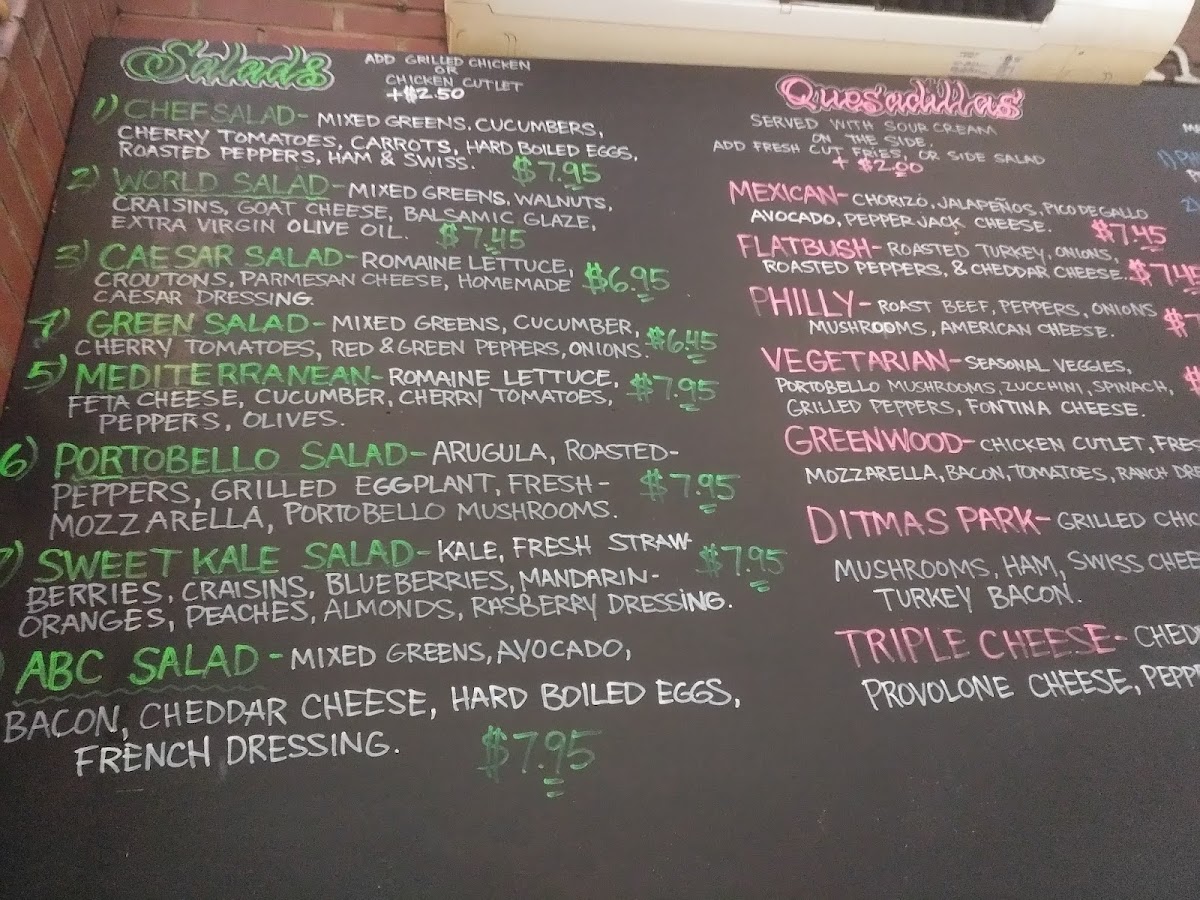 Salads
ADD GRILLED CHICKEN
OR
CHICKEN CUTLET
+$2.50
1) CHEF SALAD- MIXED GREENS. CUCUMBERS,
CHERRY TOMATOES, CARROTS, HARD BOILED EGGS,
ROASTED PEPPERS, HAM & SWISS. $7.95
2) WORLD SALAD- MIXED GREENS, WALNUTS,
CRAISINS, GOAT CHEESE, BALSAMIC GLAZE,
EXTRA VIRGIN OLIVE OIL. $7.45
3) CAESAR SALAD- ROMAINE LETTUCE,
CROUTONS, PARMESAN CHEESE, HOMEMADE $6.95
CAESAR DRESSING.
4) GREEN SALAD- MIXED GREENS, CUCUMBER,
CHERRY TOMATOES, RED & GREEN PEPPERS, ONIONS. $6.45
5) MEDITERRANEAN- ROMAINE LETTUCE,
FETA CHEESE, CUCUMBER, CHERRY TOMATOES, $7.95
PEPPERS, OLIVES.
6) PORTOBELLO SALAD- ARUGULA, ROASTED-
PEPPERS, GRILLED EGGPLANT, FRESH- $7.95
MOZZARELLA, PORTOBELLO MUSHROOMS.
7) SWEET KALE SALAD- KALE, FRESH STRAW- $7.95
BERRIES, CRAISINS, BLUEBERRIES, MANDARIN-
ORANGES, PEACHES, ALMONDS, RASBERRY DRESSING.
) ABC SALAD- MIXED GREENS, AVOCADO,
BACON, CHEDDAR CHEESE, HARD BOILED EGGS,
FRENCH DRESSING. $7.95
Quesadillas
SERVED WITH SOUR CREAM
ON THE SIDE.
ADD FRESH CUT FRIES, OR SIDE SALAD
+ $2.00
MEXICAN- CHORIZO, JALAPEÑOS, PICO DE GALLO
AVOCADO, PEPPER JACK CHEESE. $7.45
FLATBUSH- ROASTED TURKEY, ONIONS,
ROASTED PEPPERS, & CHEDDAR CHEESE. $7.45
PHILLY- ROAST BEEF, PEPPERS, ONIONS
MUSHROOMS, AMERICAN CHEESE. $7
VEGETARIAN- SEASONAL VEGGIES,
PORTOBELLO MUSHROOMS, ZUCCHINI, SPINACH, $
GRILLED PEPPERS, FONTINA CHEESE.
GREENWOOD- CHICKEN CUTLET, FRES
MOZZARELLA, BACON, TOMATOES, RANCH DRE
DITMAS PARK- GRILLED CHIC
MUSHROOMS, HAM, SWISS CHEE
TURKEY BACON.
TRIPLE CHEESE- CHEDD
PROVOLONE CHEESE, PEPP